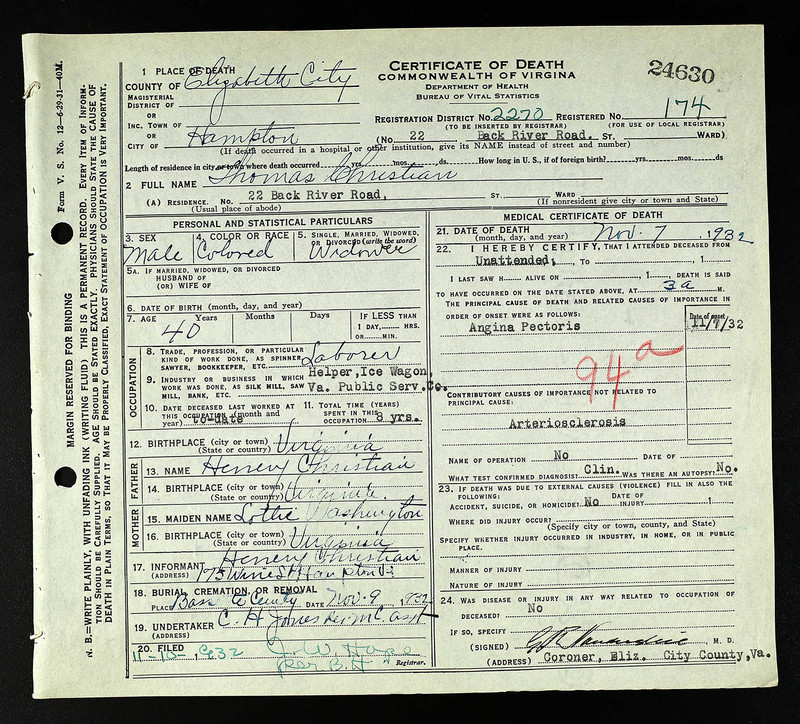 Form V. S. No. 12—6-29-31—40M.
MARGIN RESERVED FOR BINDING
N. B.=WRITE PLAINLY, WITH UNFADING INK (WRITING FLUID) THIS IS A PERMANENT RECORD. EVERY ITEM OF INFORM-
TION SHOULD BE CAREFULLY SUPPLIED. AGE SHOULD BE STATED EXACTLY. PHYSICIANS SHOULD STATE THE CAUSE OF
DEATH IN PLAIN TERMS, SO THAT IT MAY BE PROPERLY CLASSIFIED, EXACT STATEMENT OF OCCUPATION IS VERY IMPORTANT.
CERTIFICATE OF DEATH
COMMONWEALTH OF VIRGINIA
DEPARTMENT OF HEALTH
BUREAU OF VITAL STATISTICS
24630
1 PLACE OF DEATH
COUNTY OF Elizabeth City
MAGISTERIAL
DISTRICT OF
OR
INC. TOWN OF
OR
CITY OF Hampton
REGISTRATION DISTRICT NO. 2270 REGISTERED NO. 174
(TO BE INSERTED BY REGISTRAR) (FOR USE OF LOCAL REGISTRAR)
(No. 22 Back River Road. ST. WARD)
(If death occurred in a hospital or other institution, give its NAME instead of street and number)
Length of residence in city or town where death occurred yrs. mos. ds. How long in U. S., if of foreign birth? yrs. mos. ds
2 FULL NAME Thomas Christian
(A) RESIDENCE. No. 22 Back River Road, ST. WARD
(Usual place of abode) (If nonresident give city or town and State)
PERSONAL AND STATISTICAL PARTICULARS
3. SEX Male
4. COLOR OR RACE Colored
5. SINGLE, MARRIED, WIDOWED, OR DIVORCED (write the word) Widower
5A. IF MARRIED, WIDOWED, OR DIVORCED
HUSBAND OF
(OR) WIFE OF
6. DATE OF BIRTH (month, day, and year)
7. AGE Years 40 Months Days IF LESS THAN
1 DAY, HRS.
OR MIN.
OCCUPATION
8. TRADE, PROFESSION, OR PARTICULAR
KIND OF WORK DONE, AS SPINNER,
SAWYER, BOOKKEEPER, ETC. Laborer
9. INDUSTRY OR BUSINESS IN WHICH
WORK WAS DONE, AS SILK MILL, SAW
MILL, BANK, ETC.
Helper, Ice Wagon,
Va. Public Serv. Co.
10. DATE DECEASED LAST WORKED AT
THIS OCCUPATION (month and
year) to-date
11. TOTAL TIME (YEARS)
SPENT IN THIS
OCCUPATION 8 yrs.
12. BIRTHPLACE (city or town)
(State or country) Virginia
FATHER
13. NAME Henery Christian
14. BIRTHPLACE (city or town)
(State or country) Virginia
MOTHER
15. MAIDEN NAME Lottie Washington
16. BIRTHPLACE (city or town)
(State or country) Virginia
17. INFORMANT Henery Christian
(ADDRESS) 175 Wine St Hampton Va
18. BURIAL, CREMATION, OR REMOVAL
PLACE DATE Nov-9 1932
19. UNDERTAKER C. H Jones
(ADDRESS)
20. FILED 11-10-, 1932 J. W. Hope
per B.H Registrar.
MEDICAL CERTIFICATE OF DEATH
21. DATE OF DEATH
(month, day, and year) Nov. 7, 1932
22. I HEREBY CERTIFY, THAT I ATTENDED DECEASED FROM
Unattended, TO , 1
I LAST SAW H ALIVE ON , 1 , DEATH IS SAID
TO HAVE OCCURRED ON THE DATE STATED ABOVE, AT 3a M.
THE PRINCIPAL CAUSE OF DEATH AND RELATED CAUSES OF IMPORTANCE IN
ORDER OF ONSET WERE AS FOLLOWS:
Date of onset
Angina Pectoris 11/7/32
94a
CONTRIBUTORY CAUSES OF IMPORTANCE NOT RELATED TO
PRINCIPAL CAUSE:
Arteriosclerosis
NAME OF OPERATION No DATE OF
WHAT TEST CONFIRMED DIAGNOSIS? Clin. WAS THERE AN AUTOPSY? No.
23. IF DEATH WAS DUE TO EXTERNAL CAUSES (VIOLENCE) FILL IN ALSO THE
FOLLOWING:
ACCIDENT, SUICIDE, OR HOMICIDE? No DATE OF INJURY 1
WHERE DID INJURY OCCUR?
(Specify city or town, county, and State)
SPECIFY WHETHER INJURY OCCURRED IN INDUSTRY, IN HOME, OR IN PUBLIC
PLACE.
MANNER OF INJURY
NATURE OF INJURY
24. WAS DISEASE OR INJURY IN ANY WAY RELATED TO OCCUPATION OF
DECEASED? No
IF SO, SPECIFY
(SIGNED) M. D.
(ADDRESS) Coroner, Eliz. City County, Va.